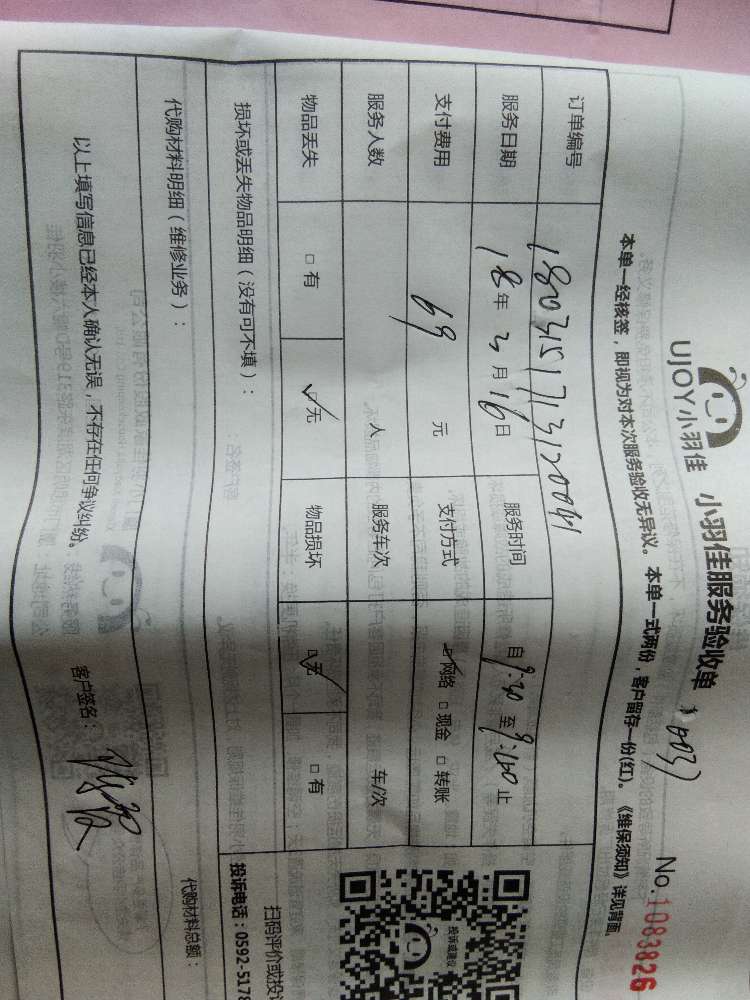 UJOY小羽佳 小羽佳服务验收单
No.1083826
本单一经核签，即视为对本次服务验收无异议。本单一式两份，客户留存一份(红)。《维保须知》详见背面。
订单编号 180315171312004
服务日期 18年3月16日 服务时间 自9:20至9:40止
支付费用 69元 支付方式 ☑网络 □现金 □转账
服务人数 人 服务车次 车/次
物品丢失 □有 ☑无 物品损坏 ☑无 □有
损坏或丢失物品明细（没有可不填）：
代购材料明细（维修业务）：
代购材料总额：
以上填写信息已经本人确认无误，不存在任何争议纠纷。 客户签名：
投诉或建议
扫码评价或投
投诉电话：0592-5178